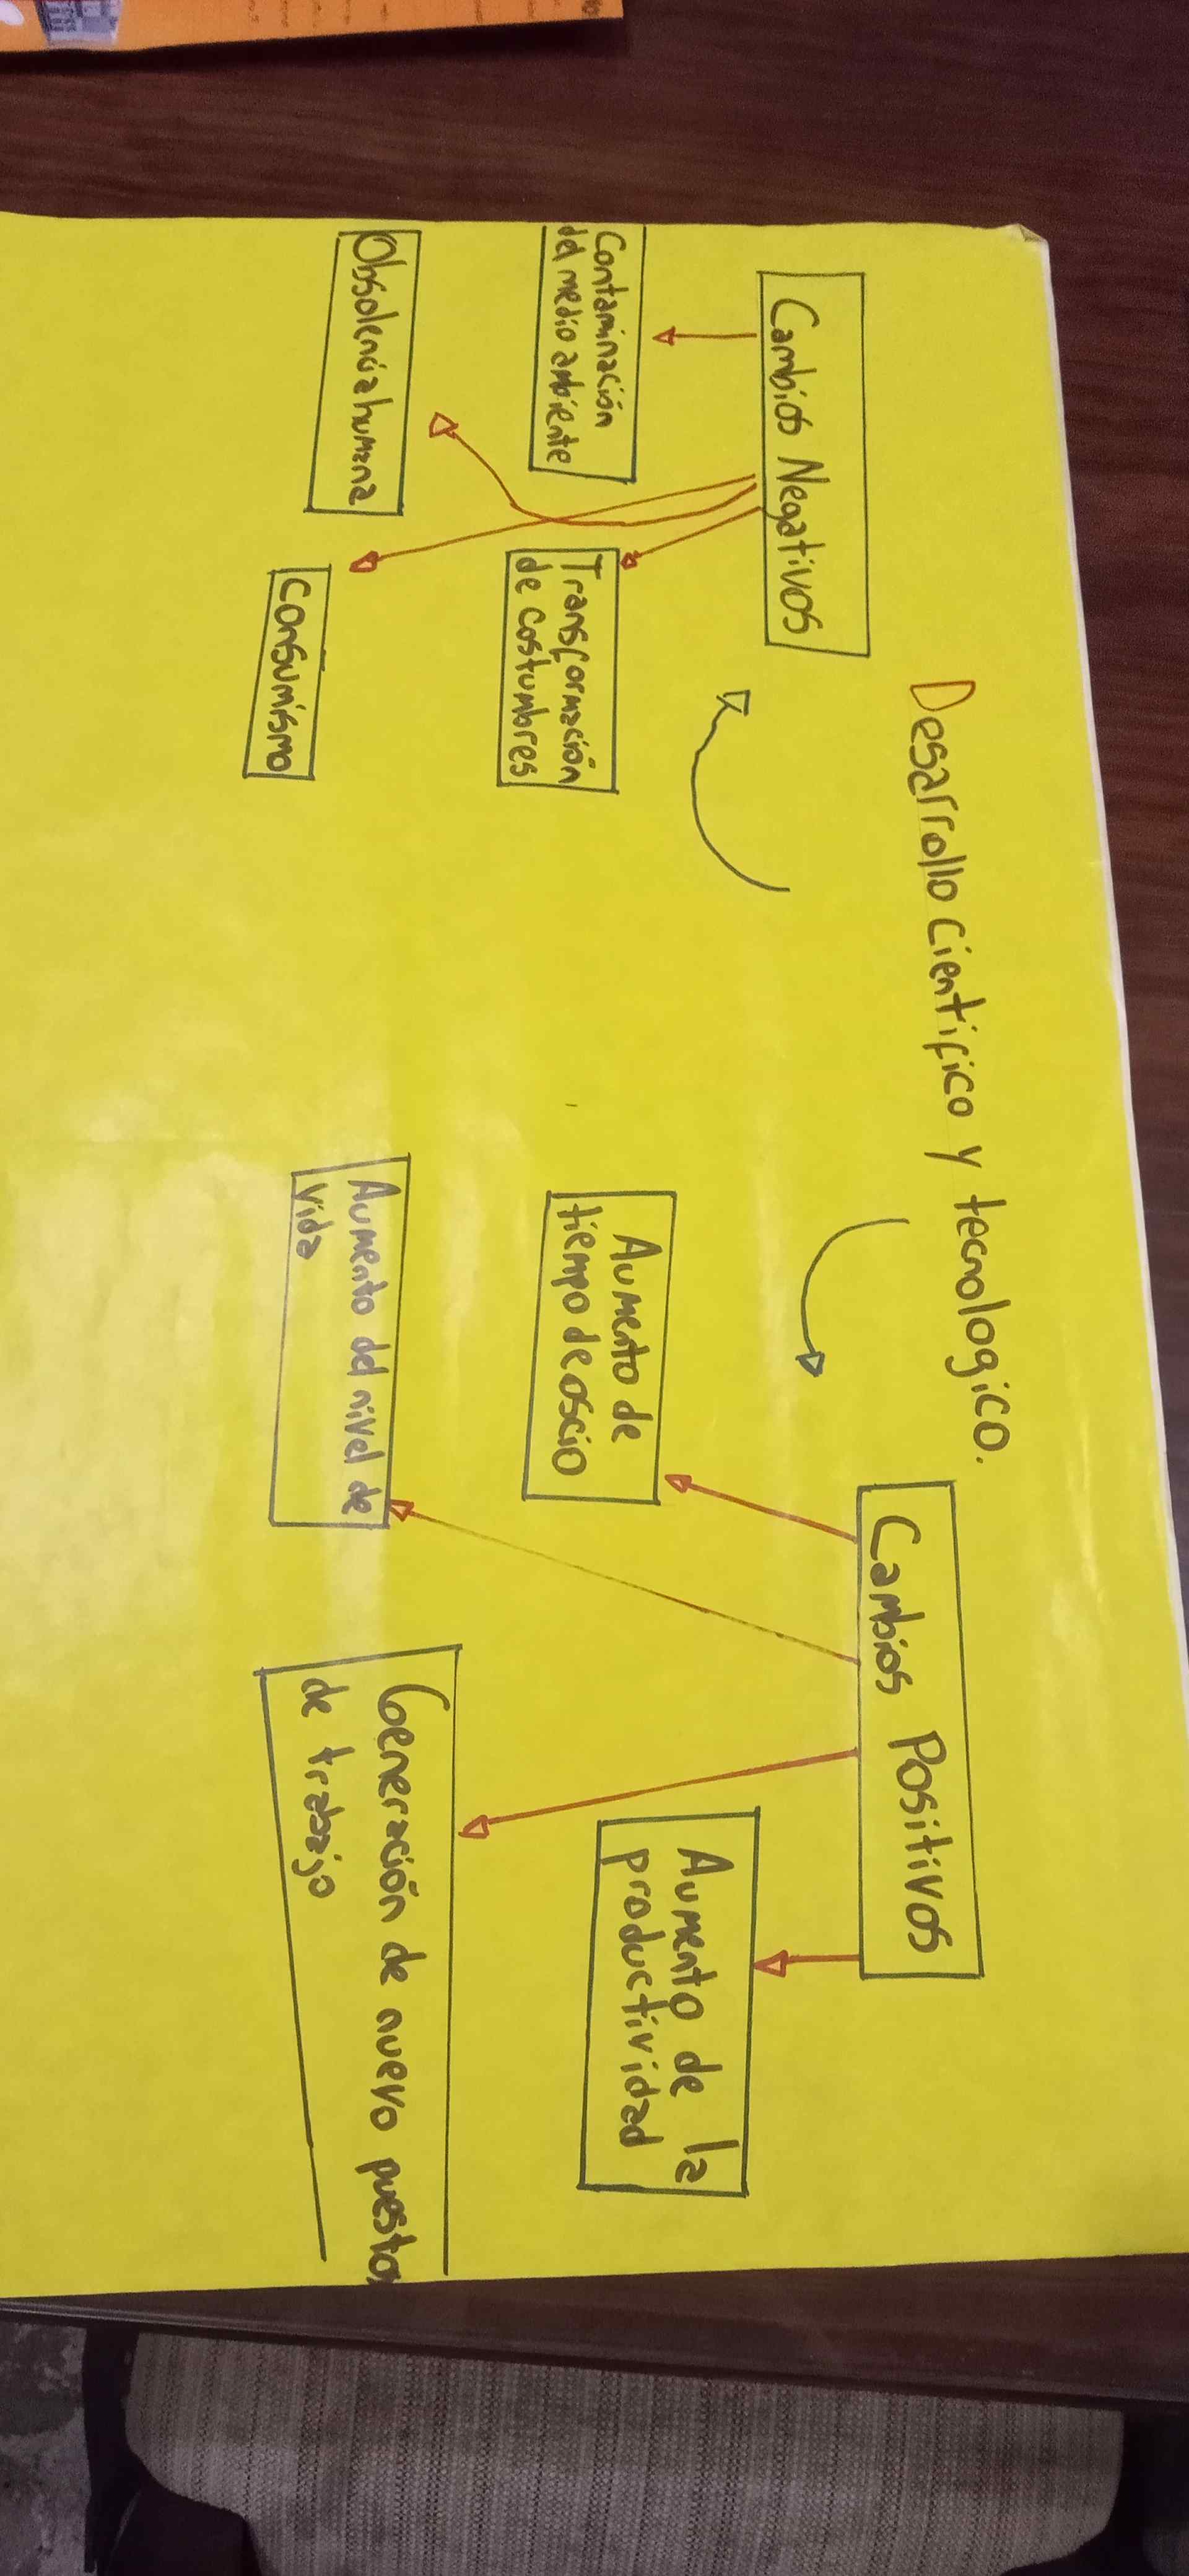 Desarrollo cientifico y tecnologico.
Cambios Negativos
Contaminación
del medio ambiente
Transformación
de costumbres
Obsolencia humana
Consumismo
Cambios Positivos
Aumento de
tiempo de oscio
Aumento de la
productividad
Aumento del nivel de
vida
Generación de nuevo puestos
de trabajo